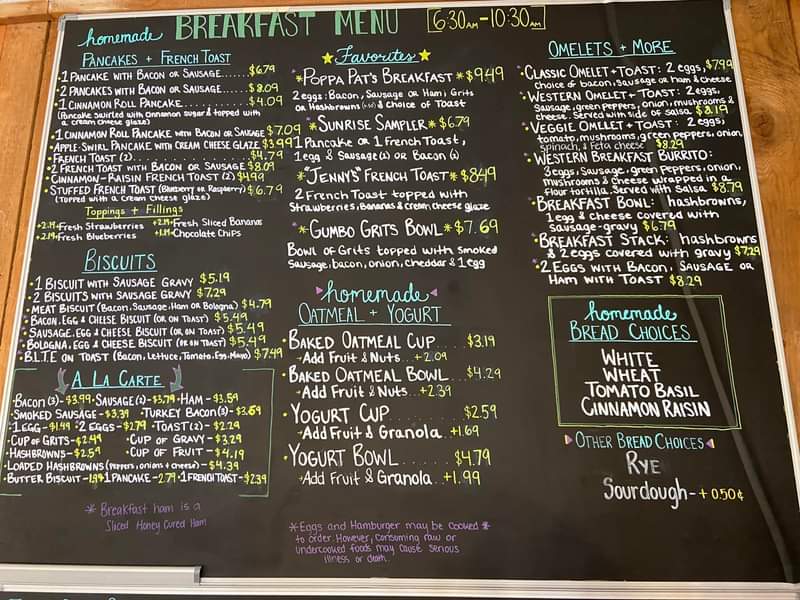 homemade BREAKFAST MENU 6:30AM-10:30AM
PANCAKES + FRENCH TOAST
•1 PANCAKE WITH BACON OR SAUSAGE......$6.79
•2 PANCAKES WITH BACON OR SAUSAGE.....$8.09
•1 CINNAMON ROLL PANCAKE..........$4.09
(Pancake swirled with cinnamon sugar & topped with
cream cheese glaze)
•1 CINNAMON ROLL PANCAKE WITH BACON OR SAUSAGE $7.09
•APPLE-SWIRL PANCAKE WITH CREAM CHEESE GLAZE $3.99
•FRENCH TOAST (2)................$4.79
•2 FRENCH TOAST WITH BACON OR SAUSAGE $8.09
•CINNAMON-RAISIN FRENCH TOAST (2) $4.99
•STUFFED FRENCH TOAST (Blueberry or Raspberry) $6.79
(TOPPED WITH A CREAM CHEESE GLAZE)
Toppings + Fillings
+2.19 •Fresh Strawberries +2.19 •Fresh Sliced Bananas
+2.19 •Fresh Blueberries +1.19 •Chocolate Chips
BISCUITS
•1 BISCUIT WITH SAUSAGE GRAVY $5.19
•2 BISCUITS WITH SAUSAGE GRAVY $7.29
•MEAT BISCUIT (Bacon, Sausage, Ham or Bologna) $4.79
•BACON, EGG & CHEESE BISCUIT (OR ON TOAST) $5.49
•SAUSAGE, EGG & CHEESE BISCUIT (OR ON TOAST) $5.49
•BOLOGNA, EGG & CHEESE BISCUIT (OR ON TOAST) $5.49
•B.L.T.E ON TOAST (Bacon, Lettuce, Tomato, Egg, Mayo) $7.49
A LA CARTE
•BACON (3)-$3.99 •SAUSAGE (2)-$3.79 •HAM-$3.59
•SMOKED SAUSAGE-$3.39 •TURKEY BACON (3)-$3.69
•1 EGG-$1.49 •2 EGGS-$2.79 •TOAST (2)-$2.29
•CUP OF GRITS-$2.49 •CUP OF GRAVY-$3.29
•HASHBROWNS-$2.59 •CUP OF FRUIT-$4.19
•LOADED HASHBROWNS (peppers, onions & cheese)-$4.39
•BUTTER BISCUIT-1.99 •1 PANCAKE-2.79 •1 FRENCH TOAST-$2.39
*Breakfast ham is a
Sliced Honey Cured Ham
Favorites
*POPPA PAT'S BREAKFAST* $9.49
2 eggs, Bacon, Sausage or Ham, Grits
or Hashbrowns & Choice of Toast
*SUNRISE SAMPLER* $6.79
1 Pancake or 1 French Toast,
1 egg & Sausage (1) or Bacon (2)
*JENNY'S FRENCH TOAST* $8.49
2 French Toast topped with
Strawberries, Bananas & Cream Cheese glaze
*GUMBO GRITS BOWL* $7.69
Bowl of Grits topped with smoked
Sausage, bacon, onion, cheddar & 1 egg
homemade
OATMEAL + YOGURT
•BAKED OATMEAL CUP...$3.19
→Add Fruit & Nuts...+2.09
•BAKED OATMEAL BOWL...$4.29
→Add Fruit & Nuts...+2.39
•YOGURT CUP.........$2.59
→Add Fruit & Granola..+1.69
•YOGURT BOWL.......$4.79
→Add Fruit & Granola..+1.99
*Eggs and Hamburger may be cooked*
to order. However, consuming raw or
undercooked foods may cause serious
illness or death.
OMELETS + MORE
•CLASSIC OMELET + TOAST: 2 eggs, $7.99
choice of bacon, sausage or ham & cheese
•WESTERN OMELET + TOAST: 2 eggs,
Sausage, green peppers, onion, mushrooms &
cheese. Served with side of salsa. $8.19
•VEGGIE OMELET + TOAST: 2 eggs,
tomato, mushrooms, green peppers, onion,
spinach, & feta cheese $8.29
•WESTERN BREAKFAST BURRITO:
3 eggs, Sausage, green peppers, onion,
mushrooms & cheese wrapped in a
flour tortilla. Served with Salsa. $8.79
•BREAKFAST BOWL: hashbrowns,
1 egg & cheese covered with
sausage-gravy $6.79
•BREAKFAST STACK: hashbrowns
& 2 eggs covered with gravy $7.29
•2 EGGS WITH BACON, SAUSAGE OR
HAM WITH TOAST $8.29
homemade
BREAD CHOICES
WHITE
WHEAT
TOMATO BASIL
CINNAMON RAISIN
OTHER BREAD CHOICES
RYE
Sourdough-+0.50¢